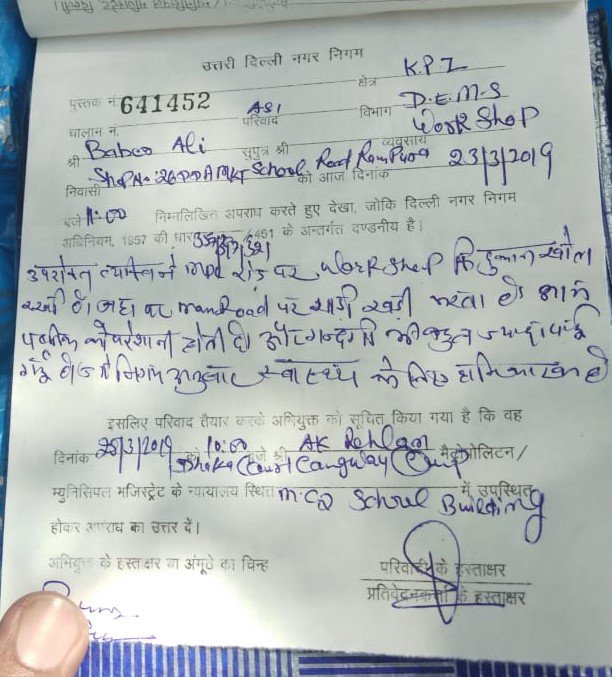 उत्तरी दिल्ली नगर निगम
क्षेत्र K.P.Z
पुस्तक नं. 641452 ASI विभाग D.E.M.S
चालान नं. परिवाद व्यवसाय Work Shop
श्री Baboo Ali सुपुत्र श्री
निवासी Shop No: School Road Rampura को आज दिनांक 23/3/2019
बजे 11:00 निम्नलिखित अपराध करते हुए देखा, जोकि दिल्ली नगर निगम
अधिनियम, 1957 की धारा /461 के अन्तर्गत दण्डनीय है।
उपरोक्त व्यक्ति ने रोड पर Work Shop कि दुकान खोल
रखी है। जहा पर Main Road पर गाडी खडी करता है
पब्लिक को परेशानी होती है। और गन्दगी भी बहुत ज्यादा पाई
गई है। जो स्वास्थ्य के लिए हानिकारक है
इसलिए परिवाद तैयार करके अभियुक्त को सूचित किया गया है कि वह
दिनांक 25/3/2019 को 10:00 बजे श्री AK मैट्रोपोलिटन/
Court
म्युनिसिपल मजिस्ट्रेट के न्यायालय स्थित M.C.D School Building में उपस्थित
होकर अपराध का उत्तर दें।
अभियुक्त के हस्ताक्षर या अंगूठे का चिन्ह
परिवादी के हस्ताक्षर
प्रतिवेदनकर्ता के हस्ताक्षर